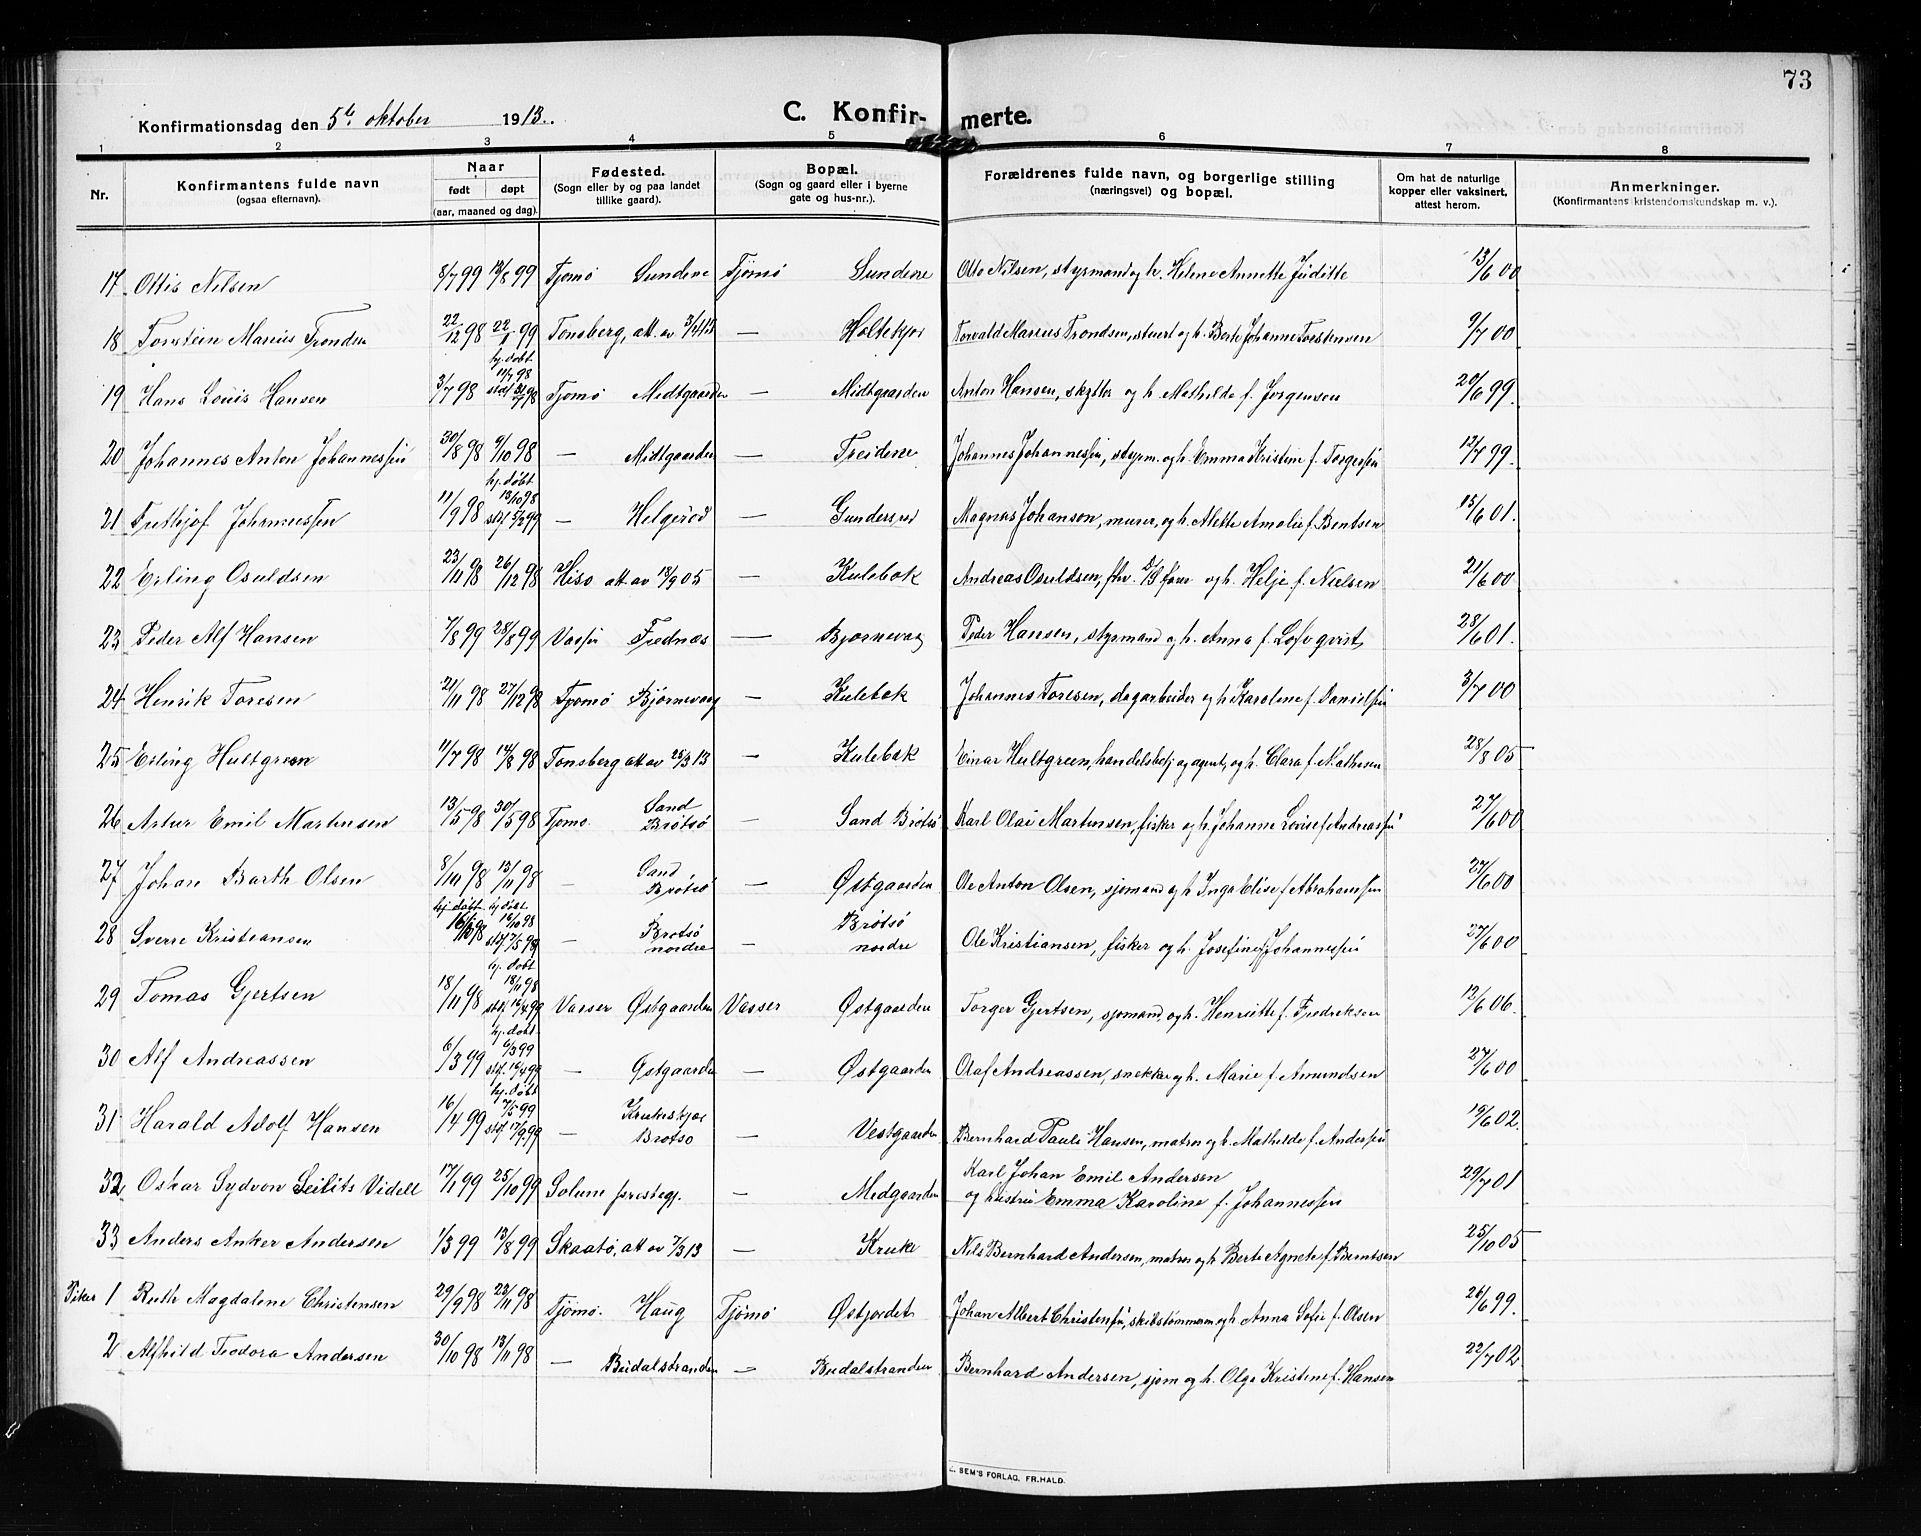 73
Konfirmationsdag den 5te oktober 1913.
C. Konfirmerte.
1 2 3 4 5 6 7 8
Nr.
Konfirmantens fulde navn
(ogsaa efternavn).
Naar
født døpt
(aar, maaned og dag).
Fødested.
(Sogn eller by og paa landet
tillike gaard).
Bopæl.
(Sogn og gaard eller i byerne
gate og hus-nr.).
Forældrenes fulde navn, og borgerlige stilling
(næringsvei) og bopæl.
Om hat de naturlige
kopper eller vaksinert,
attest herom.
Anmerkninger.
(Konfirmantens kristendomskundskap m. v.).
17 Ottis Nilsen 8/7 99 13/8 99 Tjømø Sundene Tjømø Sundene Otto Nilsen, styrmand og h. Helene Annette Juditte 13/6 00
18 Torstein Marius Tronden 22/12 98 22/1 99 Tønsberg, att. av — Holtekjær Torvald Marius Trondsen, stuert og h. Berte Johanne Torstensen 9/7 00
hj. døbt
11/7 98
19 Hans Louis Hansen 3/7 98 Tjømø Midtgaarden — Midtgaarden Anton Hansen, skytter og h. Mathilde f. Jørgensen 20/6 99.
20 Johannes Anton Johannessen 30/8 98 9/10 98 — Midtgaarden — Treidene Johannes Johannessen, styrm. og h. Emma Kristine f. Torgersen 12/7 99.
hj. døbt
13/10 98
21 Frithjof Johannessen 11/9 98 stf. 5/2 99 — Helgerød — Gundersrød Magnus Johanson, murer, og h. Alette Amalie f. Bentsen 15/6 01.
22 Erling Osuldsen 23/11 98 26/12 98 Hisø att av 18/9 05 — Kulebok Andreas Osuldsen, fhv. og h. Helje f. Nielsen 21/6 00
23 Peder Alf Hansen 7/8 99 28/8 99 Vasser Frednæs — Bjørnevaag Peder Hansen, styrmand og h. Anna f. Løfqvist 28/6 01.
24 Henrik Toresen 21/11 98 27/12 98 Tjømø Bjørnevaag — Kulebok Johannes Toresen, dagarbeider og h. Karoline f. Danielsen 3/7 00
25 Erling Hultgreen 11/7 98 14/8 98 Tønsberg att av 25/3 13 — Kulebok Einar Hultgreen, handelsbetj og agent, og h. Clara f. Mathisen 28/8 05
26 Artur Emil Martinsen 13/5 98 30/5 98 Tjømø. Sand Brøtsø — Sand Brøtsø Karl Olai Martinsen, fisker og h. Johanne Lovise f Andreassen 27/6 00
27 Johan Barth Olsen 8/10 98 13/11 98 — Sand Brøtsø — Østgaarden Ole Anton Olsen, sjømand og h Inga Elise f Abrahamsen 27/6 00
hj døbt hj døbt
16/10 98
28 Sverre Kristiansen 16/10 98 stf 7/5 99 — Brøtsø nordre — Brøtsø nordre Ole Kristiansen, fisker og h. Josefine f Johannessen 27/6 00
hj. døbt
18/11 98
29 Tomas Gjertsen 18/11 98 stf. 16/4 99 Vasser Østgaarden Vasser Østgaarden Torger Gjertsen, sjømand, og h. Henriette f. Fredriksen 12/6 06.
hj. døbt
6/3 99
30 Alf Andreassen 6/3 99 stf. 16/4 99 — Østgaarden — Østgaarden Olaf Andreassen, snekker og h. Marie f. Amundsen 27/6 00
hj. døbt
7/5 99
31 Harald Adolf Hansen 16/4 99 stf 17/9 99 — Krukeskjær Brøtsø — Vestgaarden Bernhard Pauli Hansen, matros og h Mathilde f. Andersen 19/6 02
32 Oskar Sydvon Seilits Videll 17/1 99 25/10 99 Solum prestegj. — Midgaarden Karl Johan Emil Andersen
og hustru Emma Karoline f. Johannessen 29/7 01
33 Anders Anker Andersen 1/3 99 13/8 99 Skaatø, att av 7/3 13 — Kruke Nils Bernhard Andersen, matros og h Berte Agnete f. Berntsen 25/10 05
Piker 1 Ruth Magdalene Christensen 29/9 98 23/11 98 Tjømø. Haug Tjømø Østjordet Johan Albert Christensen, skibstømmerm og h Anna Sofie f. Olsen 26/6 99.
2 Alfhild Teodora Andersen 30/10 98 13/11 98 — Budalstranden — Budalstranden Bernhard Andersen, sjøm og h. Olga Kristine f. Hansen 22/7 02
SEM'S FORLAG, FR.HALD.